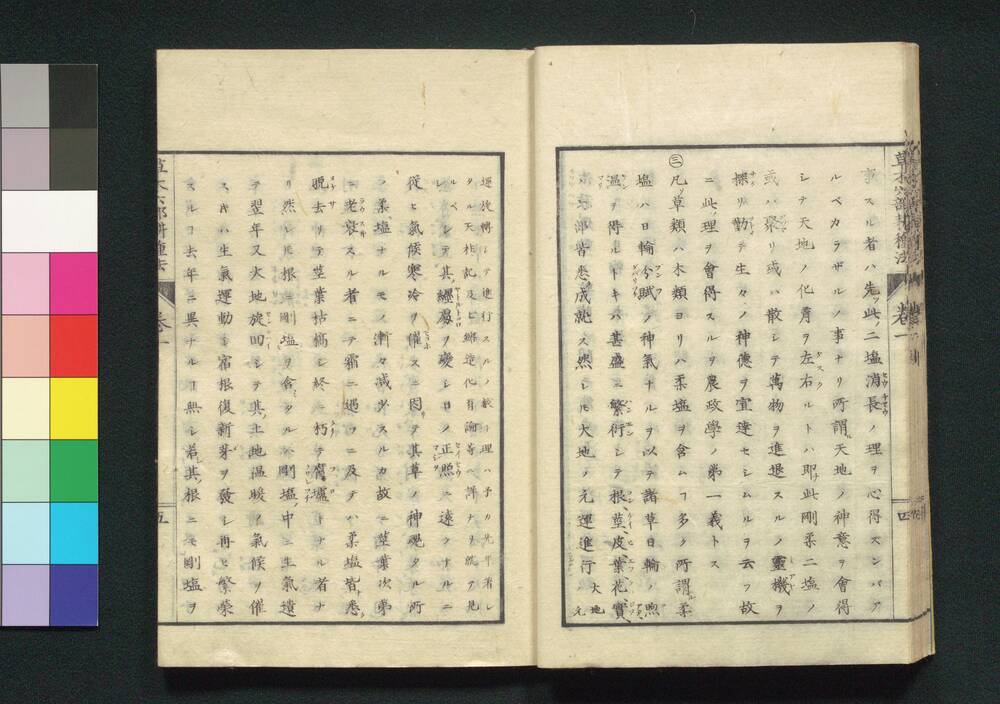 草木六部耕種法 卷一 四
事スル者ハ先ッ此ノ二塩消長ノ理ヲ心得スンバア
ルベカラザルノ事ナリ所謂天地ノ神意ヲ會得
シテ天地ノ化育ヲ左右ルトハ即此剛柔二塩ノ
或ハ聚リ或ハ散シテ萬物ヲ進退スルノ靈機ヲ
採リ動テ生々ノ神德ヲ宣達セシムルヲ云フ故
ニ此ノ理ヲ會得スルヲ農政學ノ第一義トス
㊂凡ソ草類ハ木類ヨリハ柔塩ヲ含ムヿ多ク所謂柔
塩ハ日輪分賦ノ神氣ナルヲ以テ諸草日輪ノ煦
温ヲ得ルトキハ甚盛ニ繁衍シテ根莖皮葉花實
六部皆悉ク成就ス然レトモ大地ノ元運進行 大地元
運故轉シテ進行スルノ理ハ予カ先年著シ
タル天柱記及ヒ鎔造化育論等ニ詳ナリ就テ見
ルベシ シテ其經處ヲ變シ日ノ正照ニ遠クナルニ
從ヒ氣候寒冷ヲ催スニ因テ其草ノ神魂タル所
ノ柔塩ナルモノ漸々減少スルカ故ニ莖葉次第
ニ老衰スル者ニテ霜ニ遇フニ及テハ柔塩皆悉ク
脱去リテ莖葉枯槁シ終ニ朽テ腐壚トナル者ナ
リ然レトモ根ニ剛塩ヲ含ミタルハ剛塩ノ中ニ生氣遺
テ翌年又大地旋回シテ其土地温暖ノ氣候ヲ催
スキハ生氣運動シ宿根復新芽ヲ發シ再ヒ繁榮
スルヿ去年ニ異ナルヿ無シ若其根ニモ剛塩ヲ
草木六部耕種法 卷一 五